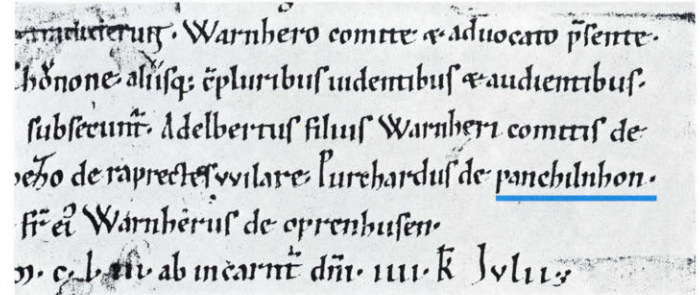 Warnhero comite & aduocato p̄sente.
aliisq; c̄pluribus uidentibus & audientibus.
subsecunt̄. Adelbertus filius Warnheri comitis de
de raprechteswilare. Purchardus de panchilnhon.
fr̄ ei᷒ Warnherus de oprenhusen.
ab incarnt̄ dn̄i. iiii. k̄ Julii.